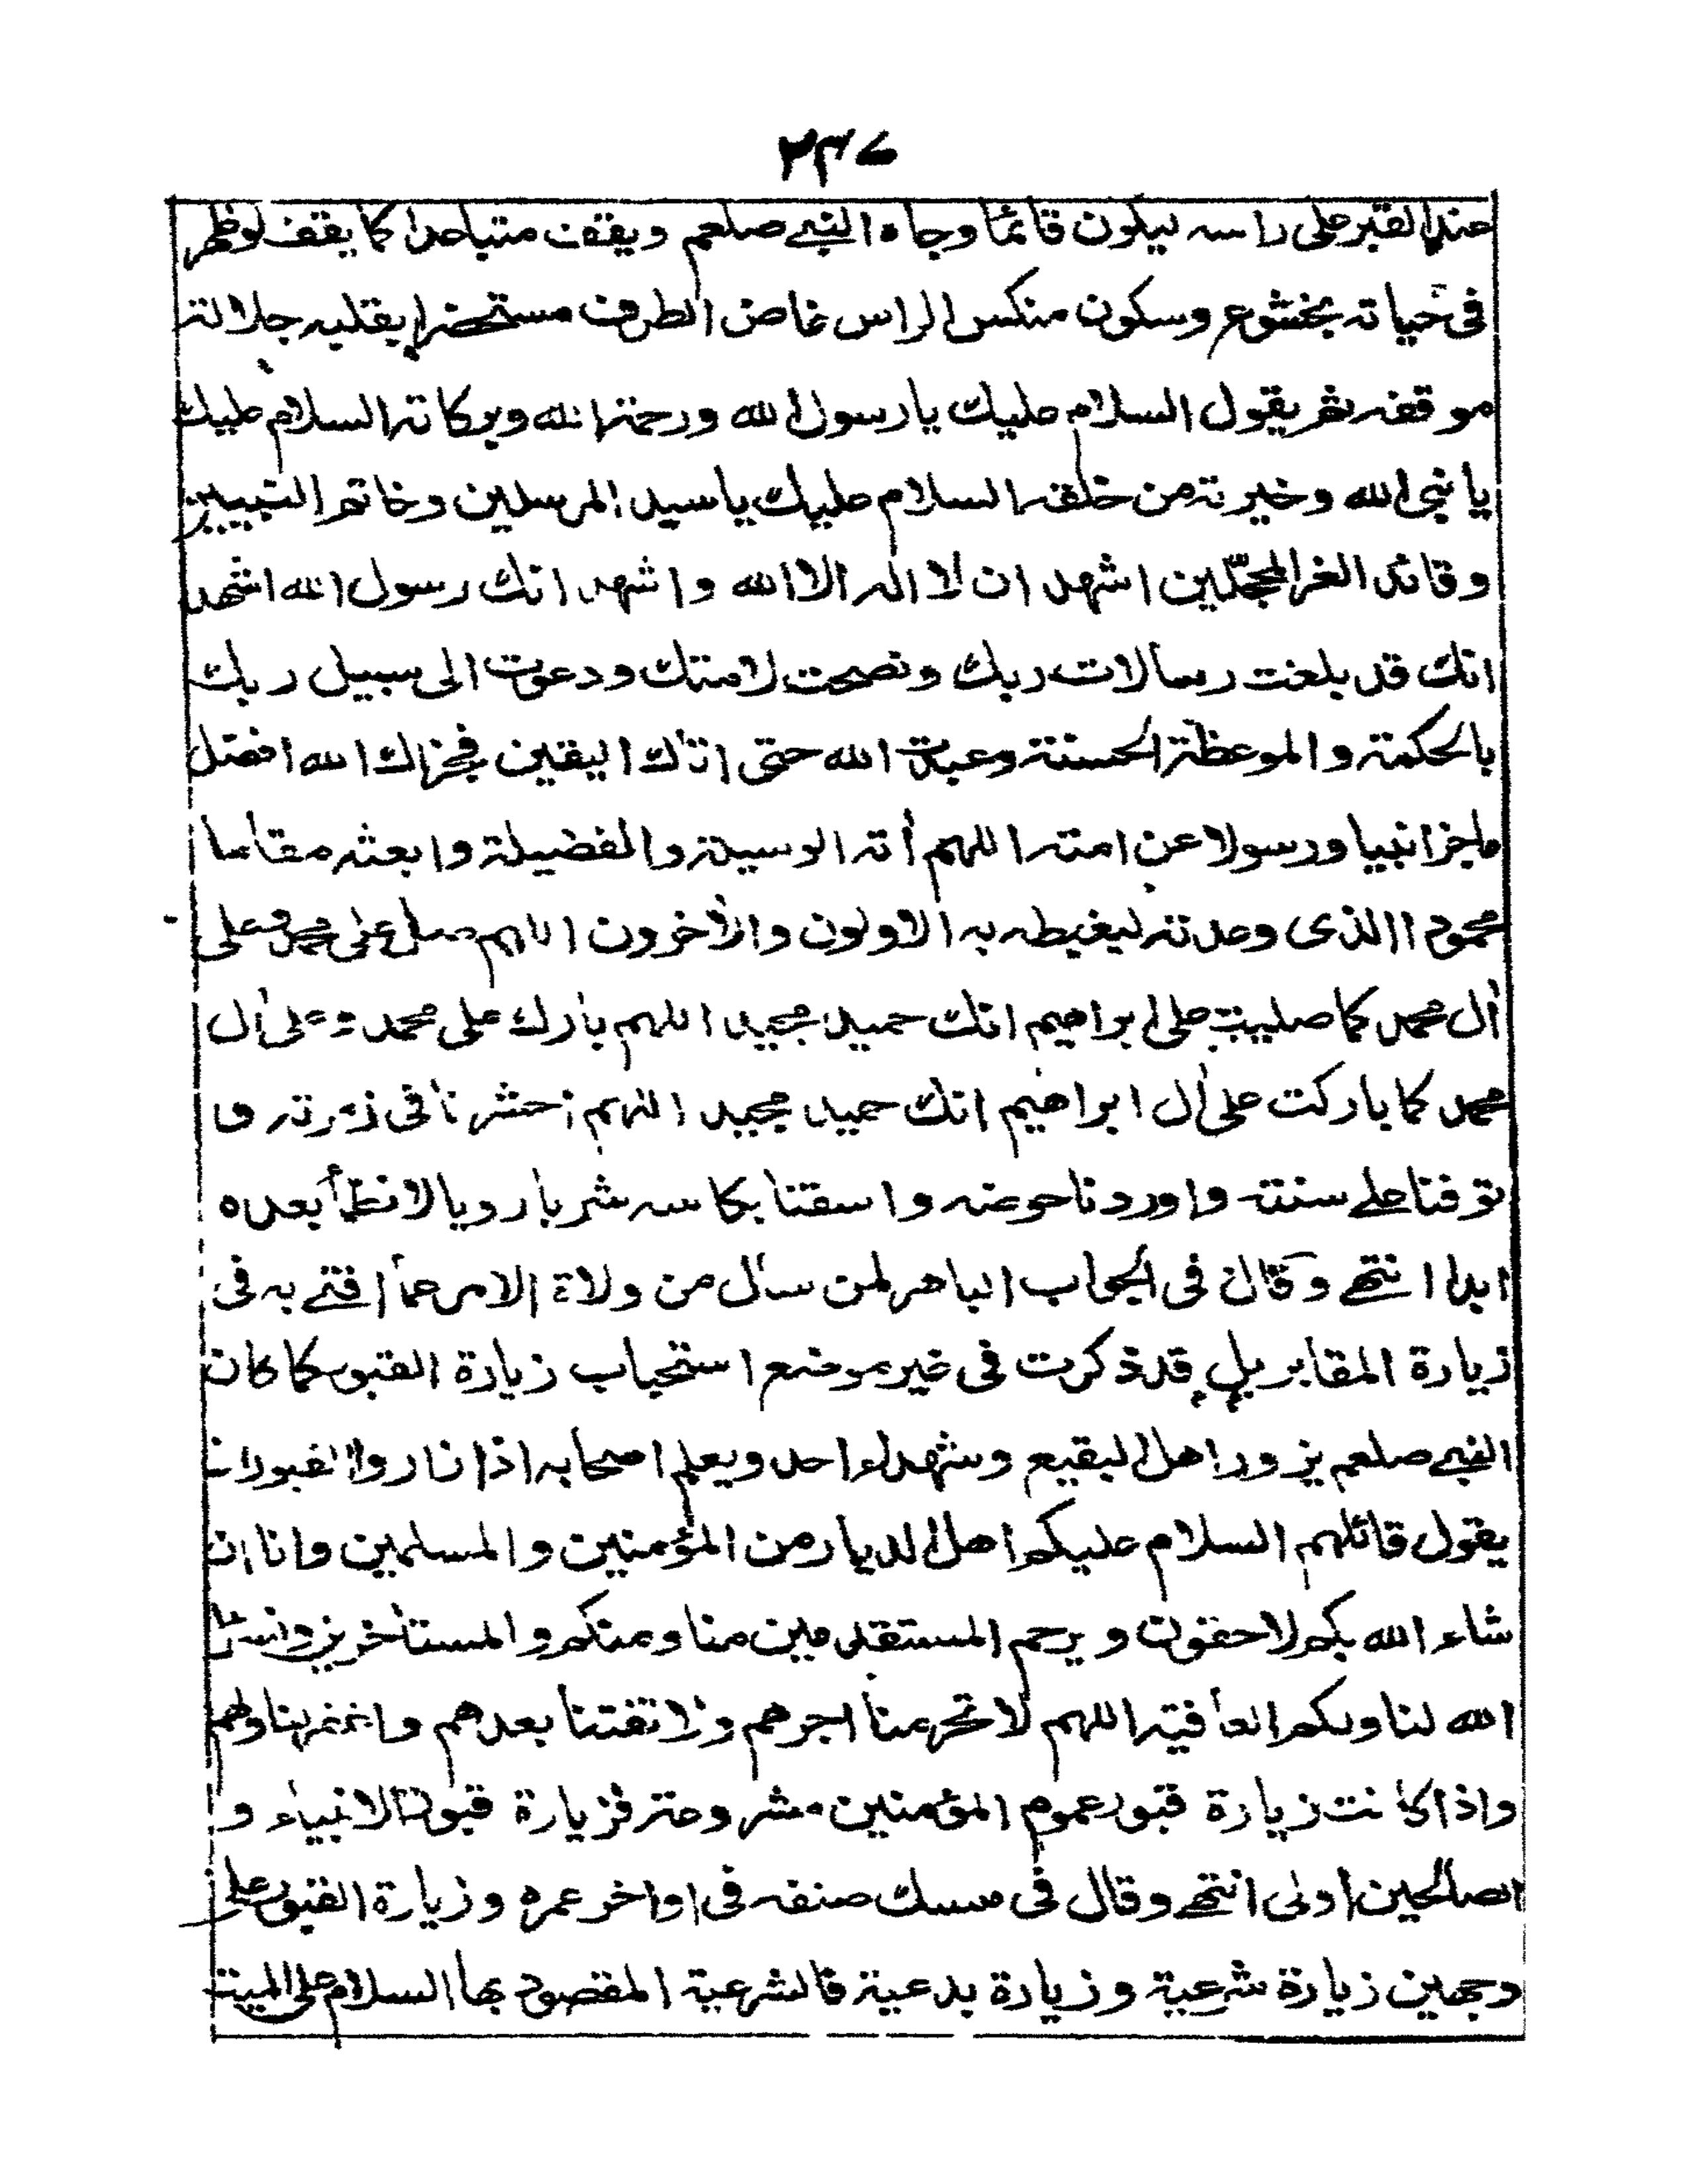 ٢٣٧
عند القبر على راسه ليكون قائما وجاه النبي صلعم ويقف متباعدا كما يقف لو ظهر
فى حياته بخشوع وسكون منكس الراس غاض الطرف مستحضرا بقلبه جلالة
موقفه ثم يقول السلام عليك يا رسول الله ورحمة الله وبركاته السلام عليك
يا نبى الله وخيرته من خلقه السلام عليك يا سيد المرسلين وخاتم النبيين
وقائد الغر المحجّلين اشهد ان لا اله الا الله واشهد انك رسول الله اشهد
انك قد بلغت رسالات ربك ونصحت لامتك ودعوت الى سبيل ربك
بالحكمة والموعظة الحسنة وعبدت الله حتى اتاك اليقين فجزاك الله افضل
ما جزا نبيا ورسولا عن امته اللهم أته الوسيلة والفضيلة وابعثه مقاما
محمودا الذى وعدته ليغبطه به الاولون والأخرون اللهم صل على محمد وعلى
أل محمد كما صليت على ابراهيم انك حميد مجيد اللهم بارك على محمد وعلى أل
محمد كما باركت على أل ابراهيم انك حميد مجيد اللهم احشرنا فى زمرته و
توفنا على سنته واوردنا حوضه واسقنا بكاسه شربا رويا لا نظمأ بعده
ابدا انتهى وقال فى الجواب الباهر لمن سأل من ولاة الامر عما افتى به فى
زيارة المقابر بل قد ذكرت فى غير موضع استحباب زيارة القبور كما كان
النبي صلعم يزور اهل البقيع وشهداء احد ويعلم اصحابه اذا زاروا القبور ان
يقول قائلهم السلام عليكم اهل الديار من المؤمنين والمسلمين وانا ان
شاء الله بكم لاحقون ويرحم المستقدمين منا ومنكم والمستأخرين ونسأل
الله لنا ولكم العافية اللهم لا تحرمنا اجرهم ولا تفتنا بعدهم واغفر لنا ولهم
واذا كانت زيارة قبور عموم المؤمنين مشروعة فزيارة قبور الانبياء و
الصالحين اولى انتهى وقال فى منسك صنفه فى اواخر عمره وزيارة القبور على
وجهين زيارة شرعية وزيارة بدعية فالشرعية المقصود بها السلام على الميت